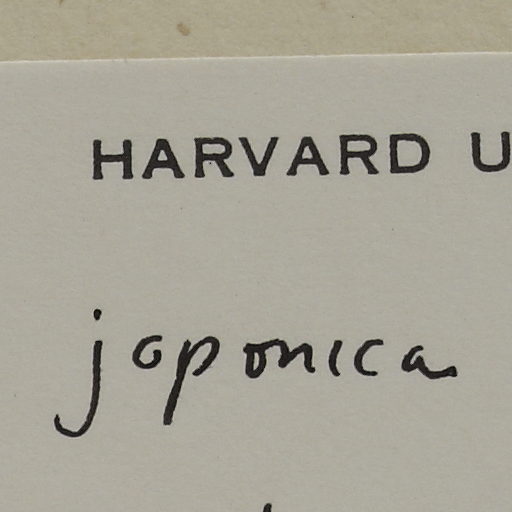 HARVARD U
japonica